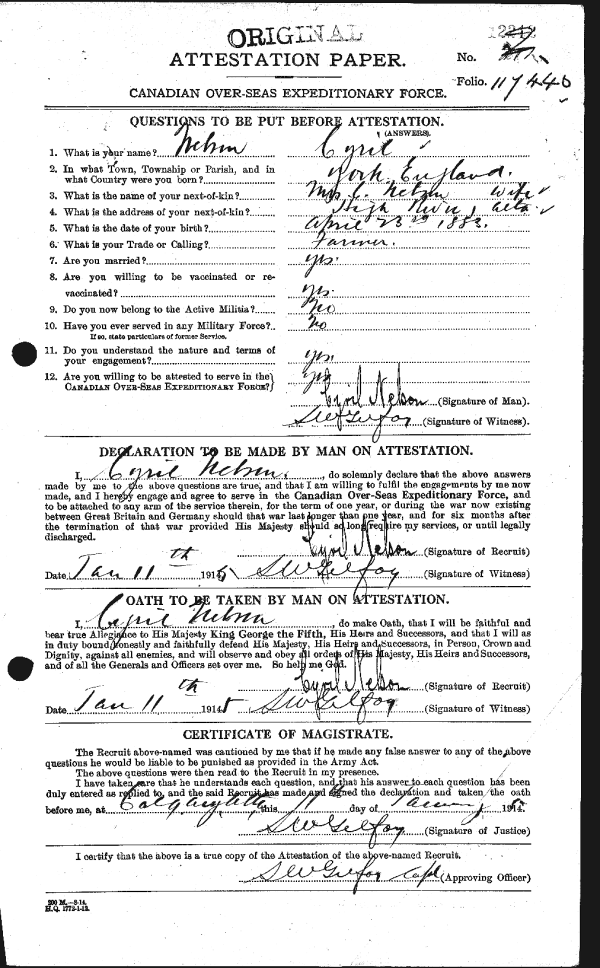 ORIGINAL
ATTESTATION PAPER.
No.
Folio. 117440
CANADIAN OVER-SEAS EXPEDITIONARY FORCE.
QUESTIONS TO BE PUT BEFORE ATTESTATION.
(ANSWERS).
1. What is your name? Nelson Cyril
2. In what Town, Township or Parish, and in
what Country were you born? York, England.
3. What is the name of your next-of-kin? Mrs. C. Nelson wife
4. What is the address of your next-of-kin? High River, Alta.
5. What is the date of your birth? April 23rd 1883.
6. What is your Trade or Calling? Farmer.
7. Are you married? yes.
8. Are you willing to be vaccinated or re-
vaccinated? yes.
9. Do you now belong to the Active Militia? No
10. Have you ever served in any Military Force? no
If so, state particulars of former Service.
11. Do you understand the nature and terms of
your engagement? yes.
12. Are you willing to be attested to serve in the
CANADIAN OVER-SEAS EXPEDITIONARY FORCE? yes
Cyril Nelson (Signature of Man).
SW Gilfoy (Signature of Witness).
DECLARATION TO BE MADE BY MAN ON ATTESTATION.
I, Cyril Nelson, do solemnly declare that the above answers
made by me to the above questions are true, and that I am willing to fulfil the engagements by me now
made, and I hereby engage and agree to serve in the Canadian Over-Seas Expeditionary Force, and
to be attached to any arm of the service therein, for the term of one year, or during the war now existing
between Great Britain and Germany should that war last longer than one year, and for six months after
the termination of that war provided His Majesty should so long require my services, or until legally
discharged.
Cyril Nelson (Signature of Recruit)
Date Jan 11th 1915 SW Gilfoy (Signature of Witness)
OATH TO BE TAKEN BY MAN ON ATTESTATION.
I, Cyril Nelson, do make Oath, that I will be faithful and
bear true Allegiance to His Majesty King George the Fifth, His Heirs and Successors, and that I will as
in duty bound honestly and faithfully defend His Majesty, His Heirs and Successors, in Person, Crown and
Dignity, against all enemies, and will observe and obey all orders of His Majesty, His Heirs and Successors,
and of all the Generals and Officers set over me. So help me God.
Cyril Nelson (Signature of Recruit)
Date Jan 11th 1915 SW Gilfoy (Signature of Witness)
CERTIFICATE OF MAGISTRATE.
The Recruit above-named was cautioned by me that if he made any false answer to any of the above
questions he would be liable to be punished as provided in the Army Act.
The above questions were then read to the Recruit in my presence.
I have taken care that he understands each question, and that his answer to each question has been
duly entered as replied to, and the said Recruit has made and signed the declaration and taken the oath
before me, at Calgary Alta this 11th day of January 1915.
SW Gilfoy (Signature of Justice)
I certify that the above is a true copy of the Attestation of the above-named Recruit.
SW Gilfoy Capt (Approving Officer)
200 M.—8-14.
H.Q. 1772-1-13.